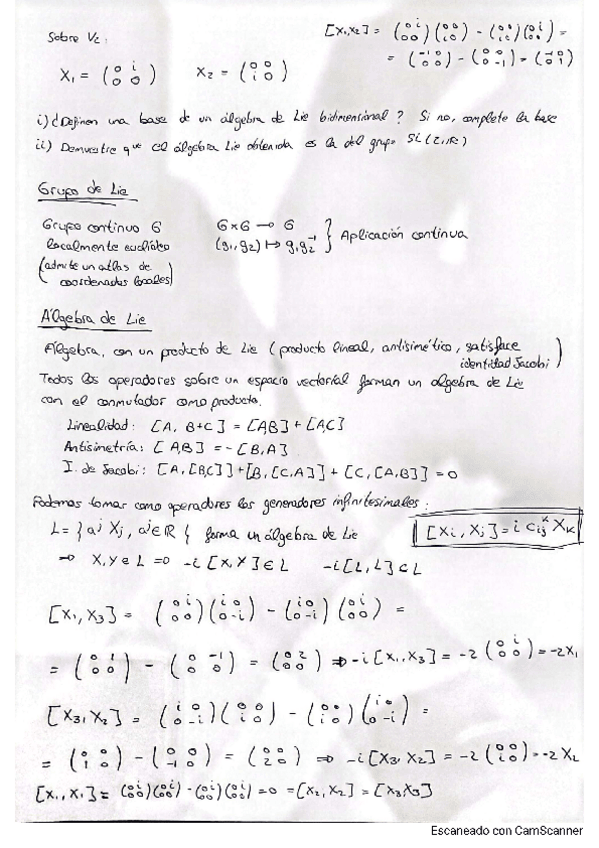 Sobre V₂:
X₁ = (0 i / 0 0)    X₂ = (0 0 / i 0)
[X₁,X₂] = (0 i / 0 0)(0 0 / i 0) - (0 0 / i 0)(0 i / 0 0) =
= (-1 0 / 0 0) - (0 0 / 0 -1) = (-1 0 / 0 1)
i) ¿Definen una base de un álgebra de Lie bidimensional? Si no, complete la base
ii) Demuestre que el álgebra Lie obtenida es la del grupo SL(2,R)
Grupo de Lie
Grupo continuo G    G×G → G
localmente euclídeo    (g₁,g₂) ↦ g₁g₂⁻¹ } Aplicación continua
(admite un atlas de
coordenadas locales)
Álgebra de Lie
Algebra, con un producto de Lie (producto lineal, antisimético, satisface
identidad Jacobi)
Todos los operadores sobre un espacio vectorial forman un algebra de Lie
con el conmutador como producto.
Linealidad: [A, B+C] = [A,B] + [A,C]
Antisimetría: [A,B] = -[B,A]
I. de Jacobi: [A,[B,C]]+[B,[C,A]] + [C,[A,B]] = 0
Podemos tomar como operadores los generadores infinitesimales:
L = {aʲ Xⱼ, aʲ∈R} forma un álgebra de Lie    [Xᵢ, Xⱼ] = i cᵢⱼᵏ Xₖ
⇒ X,Y ∈ L ⇒ -i [X,Y] ∈ L    -i[L,L] ⊂ L
[X₁, X₃] = (0 i / 0 0)(i 0 / 0 -i) - (i 0 / 0 -i)(0 i / 0 0) =
= (0 1 / 0 0) - (0 -1 / 0 0) = (0 2 / 0 0) ⇒ -i [X₁,X₃] = -2 (0 i / 0 0) = -2X₁
[X₃, X₂] = (i 0 / 0 -i)(0 0 / i 0) - (0 0 / i 0)(i 0 / 0 -i) =
= (0 0 / 1 0) - (0 0 / -1 0) = (0 0 / 2 0) ⇒ -i[X₃, X₂] = -2 (0 0 / i 0) = -2 X₂
[X₁,X₁] = (0 i / 0 0)(0 i / 0 0) - (0 i / 0 0)(0 i / 0 0) = 0 = [X₂,X₂] = [X₃X₃]
Escaneado con CamScanner